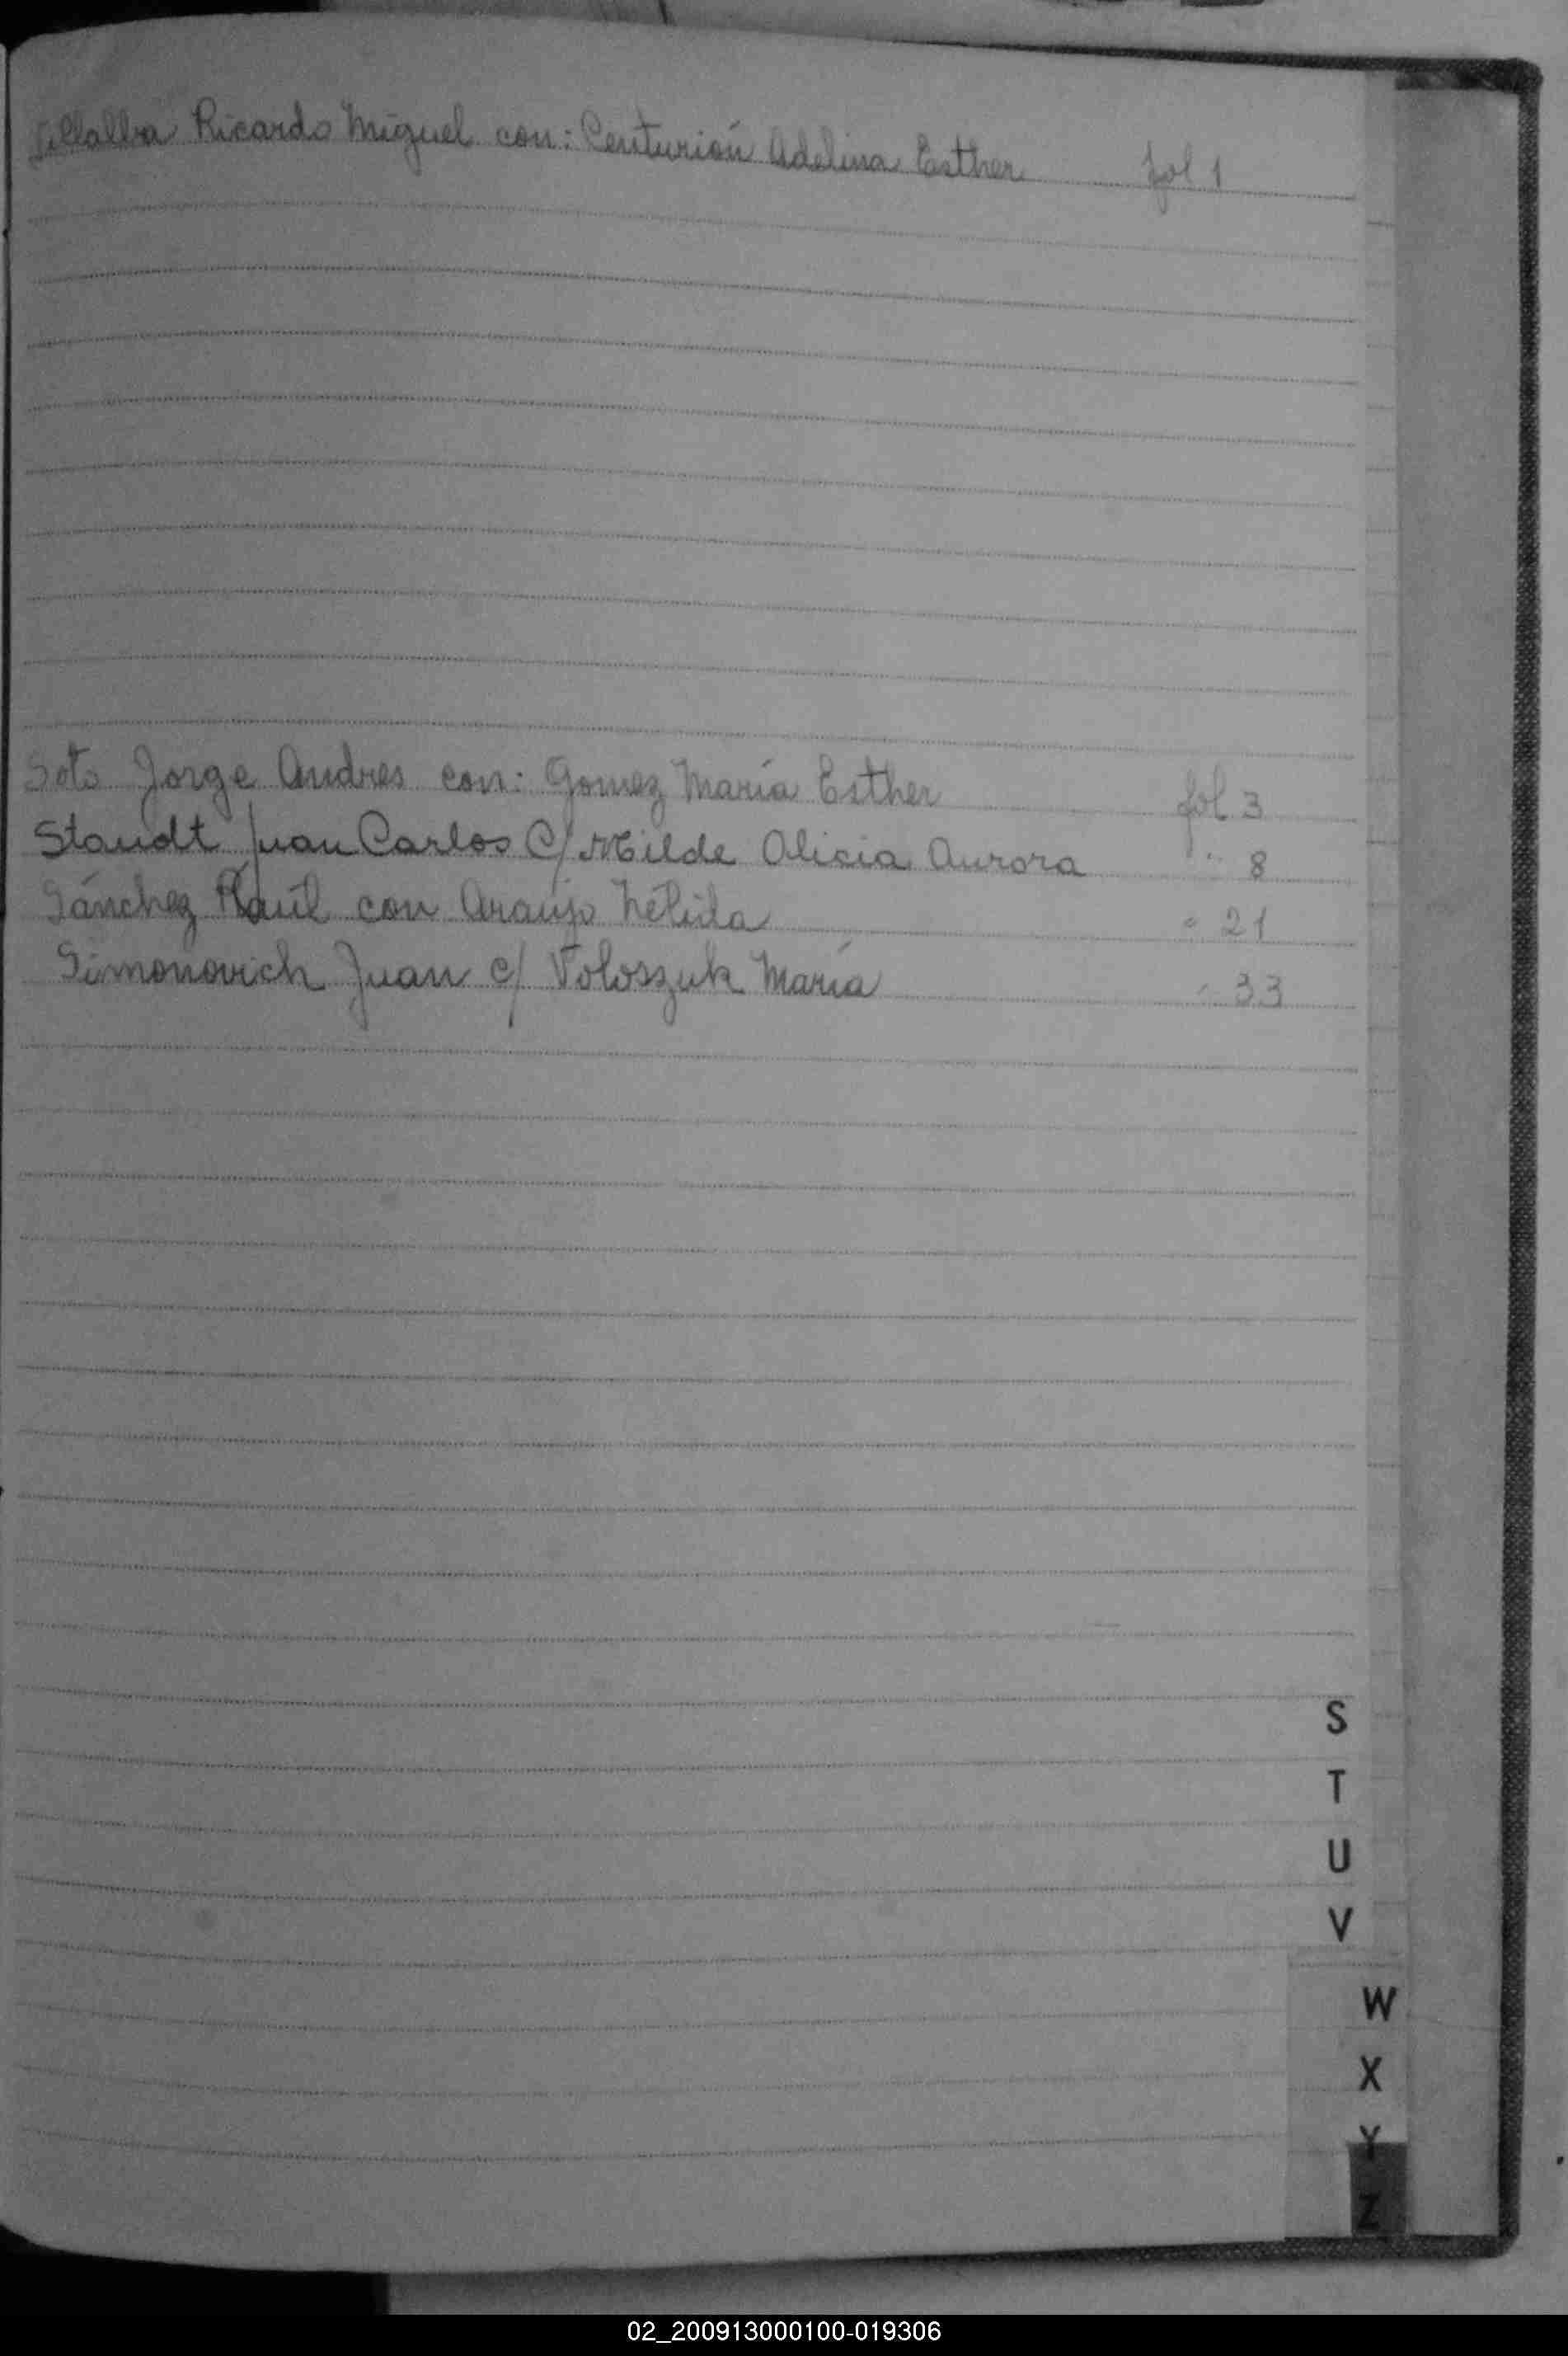 Villalba Ricardo Miguel con: Centurión Adelina Esther fol 1
Soto Jorge Andres con: Gomez María Esther fol 3
Staudt Juan Carlos C/ Milde Alicia Aurora " 8
Sánchez Raúl con Araujo Nélida " 21
Simonovich Juan c/ Voloszuk María " 33
S
T
U
V
W
X
Y
Z
02_200913000100-019306